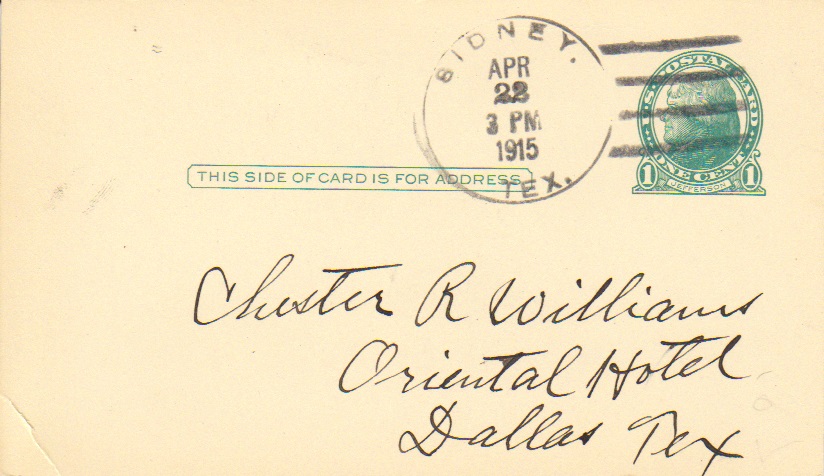 SIDNEY.
APR
22
3 PM
1915
TEX.
U.S. POSTAL CARD
1 ONE CENT 1
JEFFERSON
THIS SIDE OF CARD IS FOR ADDRESS
Chester R Williams
Oriental Hotel
Dallas Tex